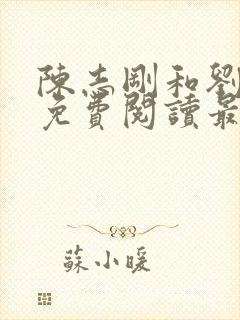 陳志剛和劉
免費閱讀最
蘇小暖